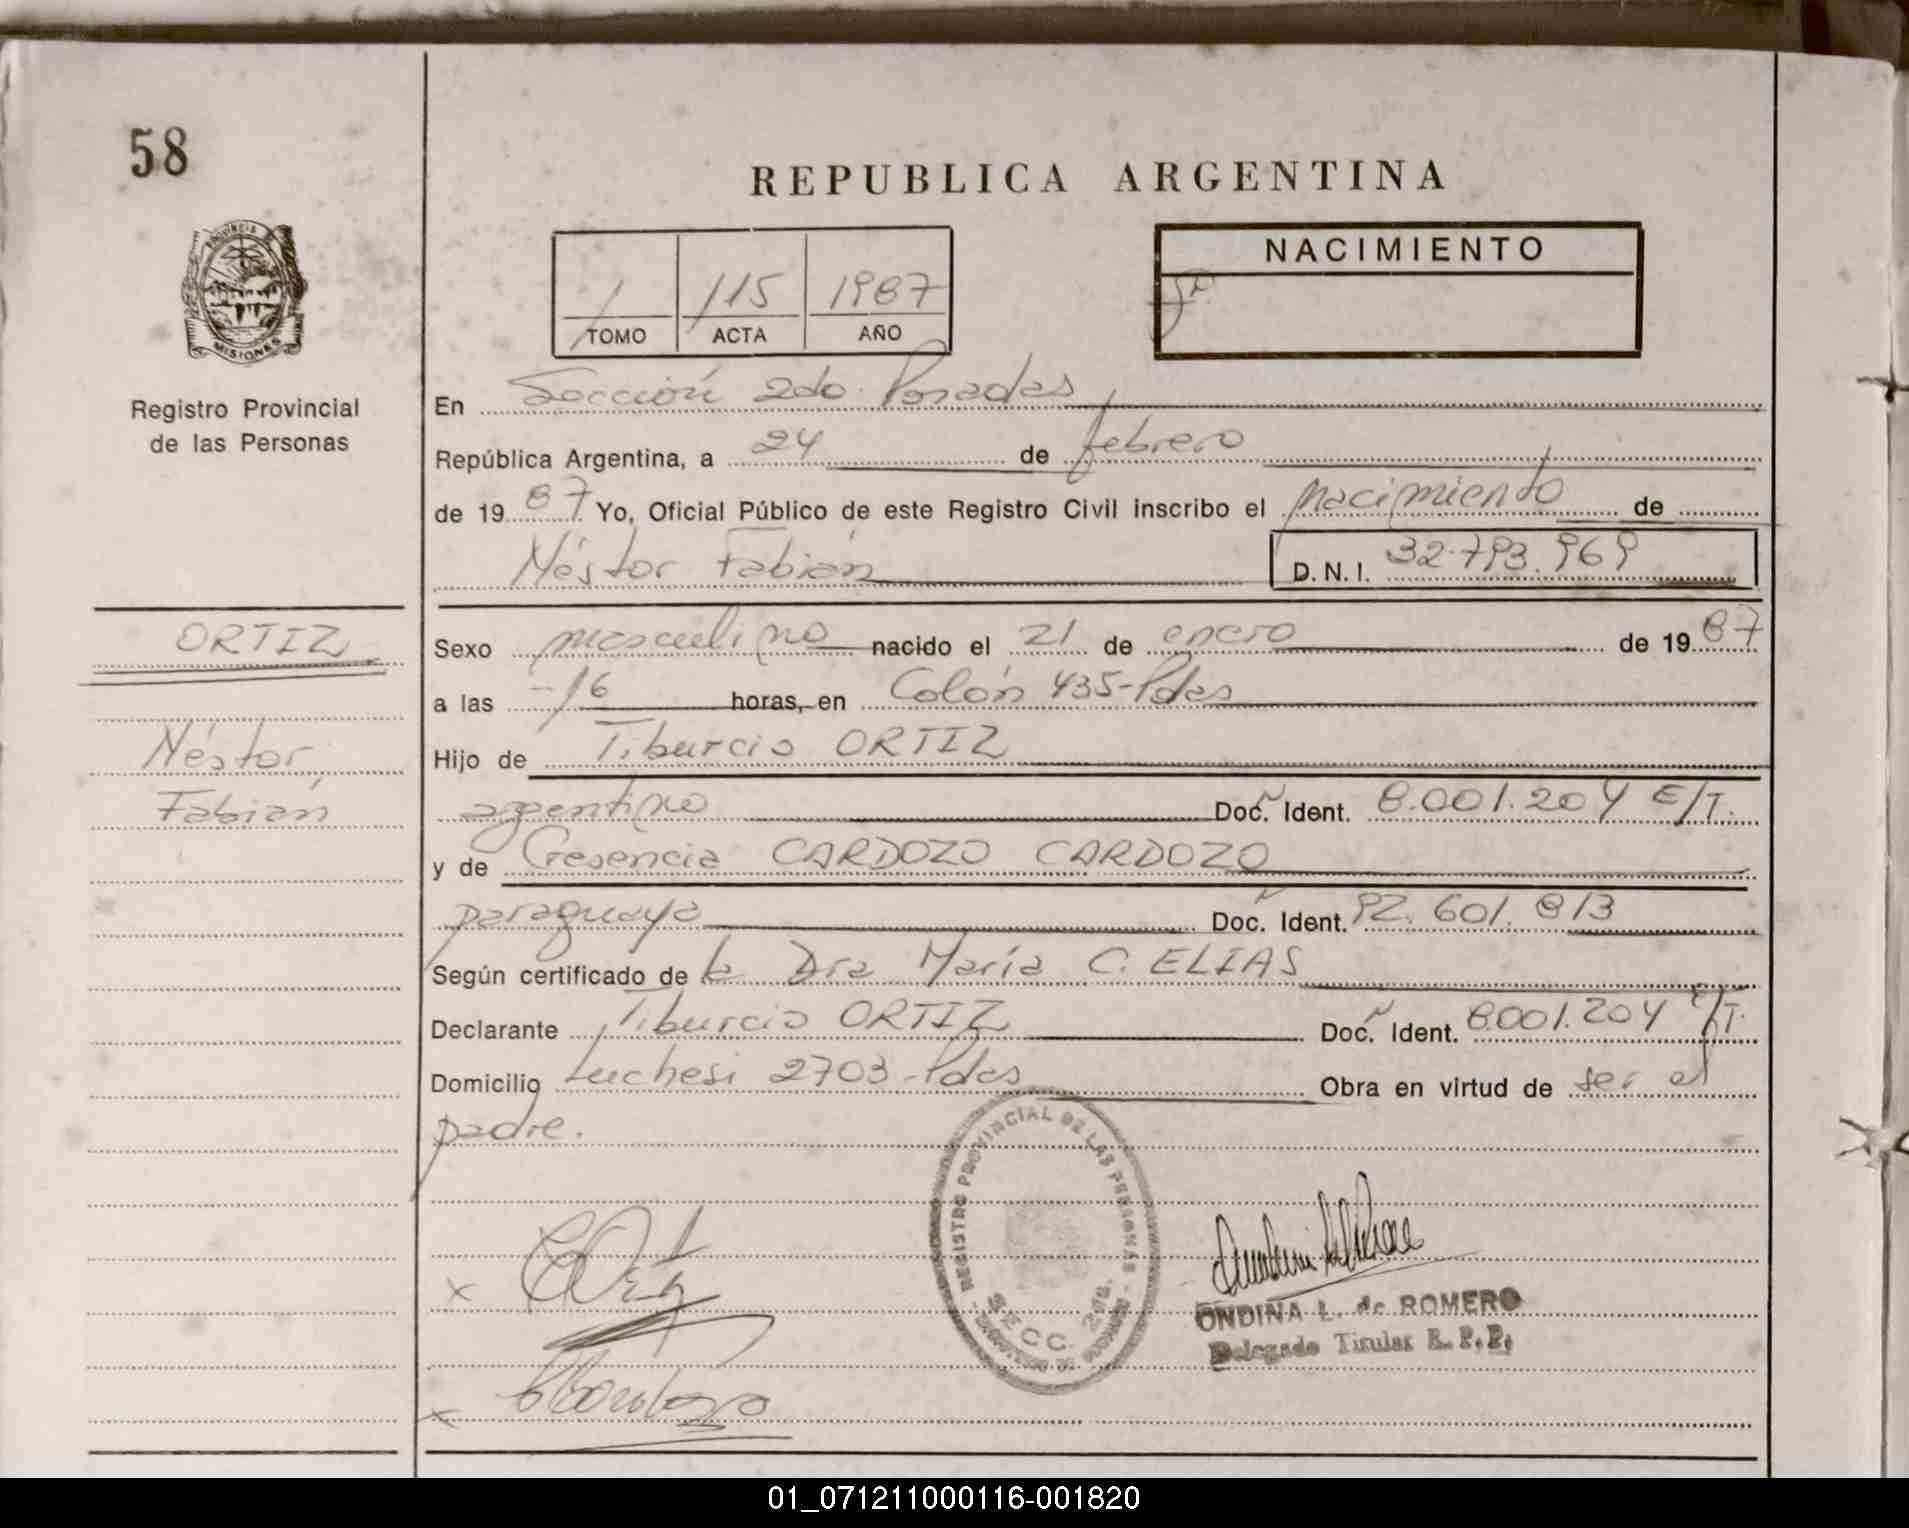 58
REPUBLICA ARGENTINA
PROVINCIA
MISIONES
Registro Provincial
de las Personas
1 115 1987
TOMO ACTA AÑO
NACIMIENTO
En Sección 2do. Posadas
República Argentina, a 24 de febrero
de 1987 Yo, Oficial Público de este Registro Civil inscribo el nacimiento de
Néstor Fabián D.N.I. 32.793.969
ORTIZ
Néstor
Fabián
Sexo masculino nacido el 21 de enero de 1987
a las -16 horas, en Colón 435-Pdas
Hijo de Tiburcio ORTIZ
argentino Doc. Ident. 8.001.204 E/T.
y de Cresencia CARDOZO CARDOZO
paraguaya Doc. Ident. 92.601.813
Según certificado de la Dra María C. ELIAS
Declarante Tiburcio ORTIZ Doc. Ident. 8.001.204 E/T.
Domicilio Luchesi 2703-Pdas Obra en virtud de ser el
padre.
REGISTRO PROVINCIAL DE LAS PERSONAS
SECC. 2da.
x
x
ONDINA L. de ROMERO
Delegado Titular R. P. P.
01_071211000116-001820